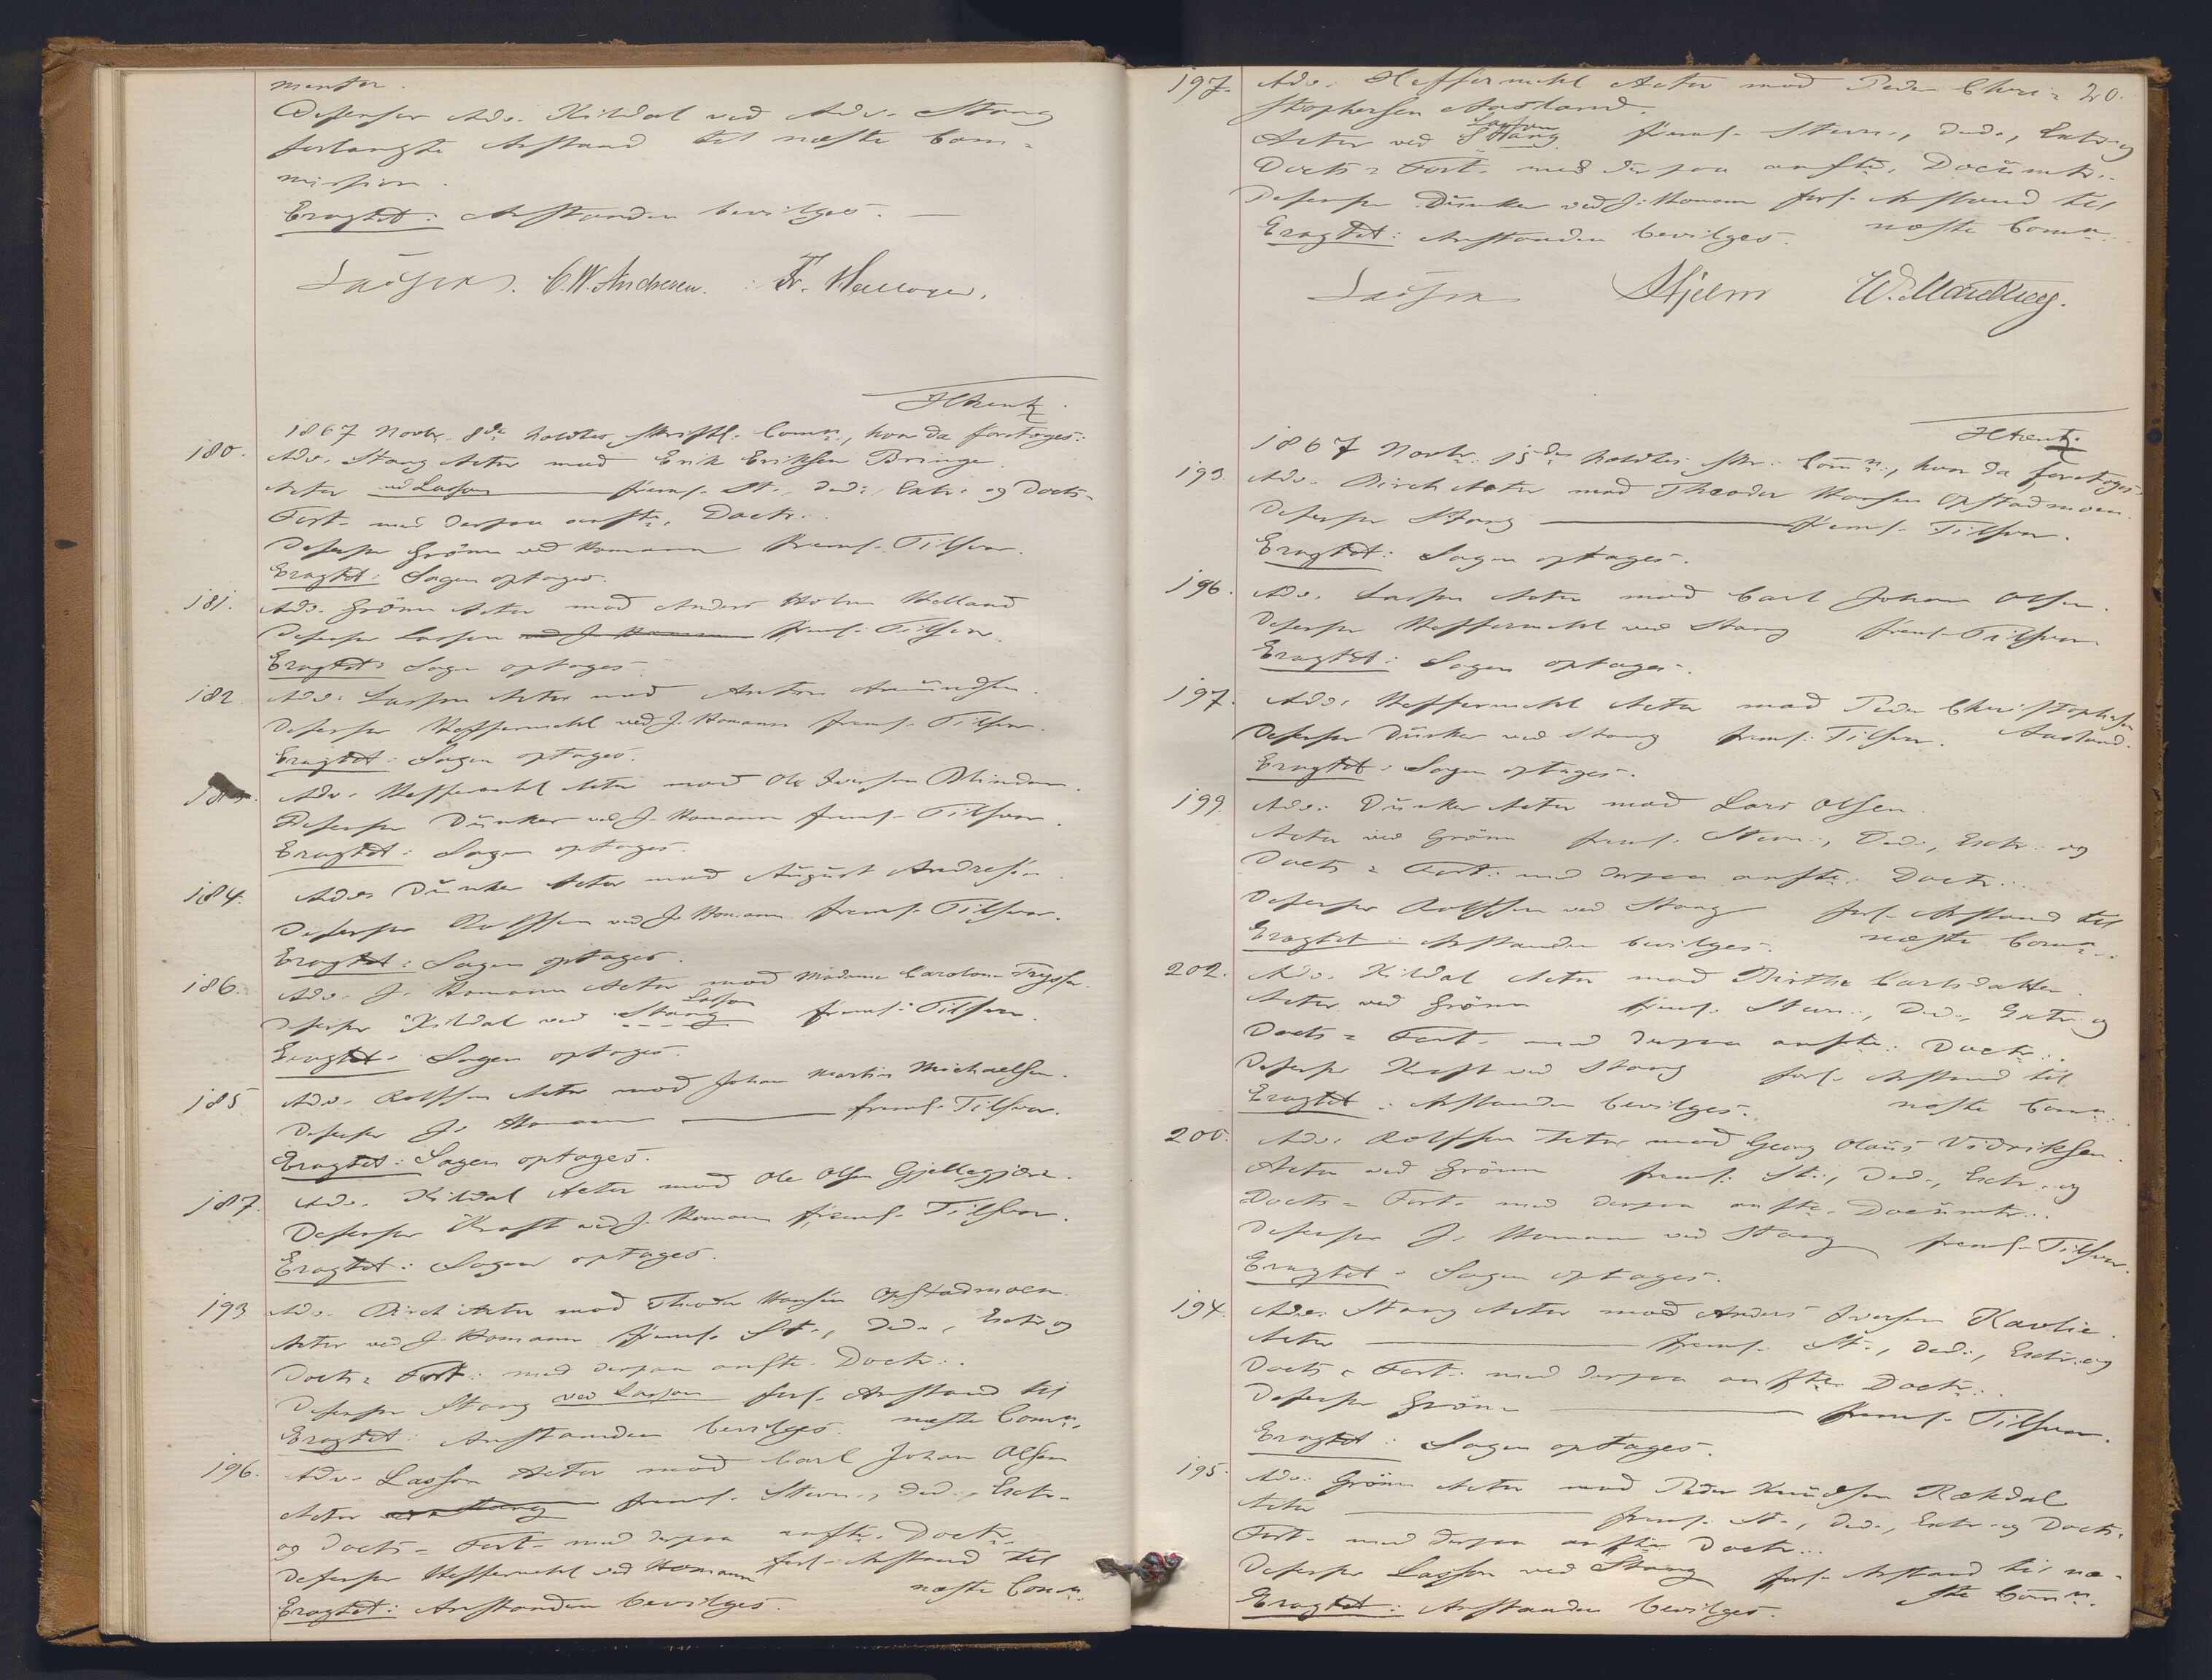 menter.
Defensor Adv. Kildal ved Adv. Stang
forlangte Anstand til næste Com-
mission.
Eragtet: Anstanden bevilges.
Lasson. C. W. Andresen. Fr.
1867 Novbr. 8de holdtes skriftl. Commn., hvor da foretoges:
180. Adv. Stang Actor mod Erik Eriksen Bringe.
Actor ved Lasson freml. St., Ded., Extr. og Docts-
Fort. med derpaa anfte. Doctr..
Defensor Grönn ved Homann freml. Tilsvar.
Eragtet: Sagen optages.
181. Adv. Grönn Actor mod Anders Holm Helland
Defensor Lasson ved J. Homann freml. Tilsvar.
Eragtet: Sagen optages.
182. Adv. Lasson Actor mod Anton Amundsen.
Defensor Heffermehl ved J. Homann freml. Tilsvar.
Eragtet: Sagen optages.
Adv. Heffermehl Actor mod Ole Iversen
Defensor Dunker ved J. Homann freml. Tilsvar.
Eragtet: Sagen optages.
184. Adv. Dunker Actor mod August Andresen.
Defensor Rolfsen ved J. Homann freml. Tilsvar.
Eragtet: Sagen optages.
186. Adv. J. Homann Actor mod Madame Caroline
Lasson
Defensor Kildal ved Stang freml. Tilsvar.
Eragtet: Sagen optages.
185 Adv. Rolfsen Actor mod Johan Martin Michaelsen.
Defensor J. Homann freml. Tilsvar.
Eragtet: Sagen optages.
187. Adv. Kildal Actor mod Ole Olsen Gjellegjære.
Defensor Kraft ved J. Homann freml. Tilsvar.
Eragtet: Sagen optages.
193 Adv. Birch Actor mod Theodor Hansen Opstadmoen.
Actor ved J. Homann freml. St., Ded., Extr. og
Docts- Fort. med derpaa anfte. Doctr..
Defensor Stang ved Lasson forl. Anstand til
Eragtet: Anstanden bevilges. næste Commn.
196. Adv. Lasson Actor mod Carl Johan Olsen
Actor ved Stang freml. Stevn., Ded., Extr.
og Docts- Fort. med derpaa anfte. Doctr.
Defensor Heffermehl ved Homann forl. Anstand til
næste Commn.
Eragtet: Anstanden bevilges.
20.
197. Adv. Heffermehl Actor mod Peder Chri-
stophersen Aasland.
Lasson
Actor ved Stang freml. Stevn., Ded., Extr. og
Docts- Fort. med derpaa anfte. Documtr..
Defensor Dunker ved J. Homann forl. Anstand til
Eragtet: Anstanden bevilges. næste Commn.
Lasson Hjelm
1867 Novbr. 15de holdtes skr. Commn., hvor da foretoges:
193. Adv. Birch Actor mod Theodor Hansen Opstadmoen.
Defensor Stang freml. Tilsvar.
Eragtet: Sagen optages.
196. Adv. Lasson Actor mod Carl Johan Olsen.
Defensor Heffermehl ved Stang freml. Tilsvar
Eragtet: Sagen optages.
197. Adv. Heffermehl Actor mod Peder Christophersen
Defensor Dunker ved Stang freml. Tilsvar. Aasland.
Eragtet: Sagen optages.
199. Adv. Dunker Actor mod Lars Olsen.
Actor ved Grönn freml. Stevn., Ded., Extr. og
Docts- Fort. med derpaa anfte. Doctr...
Defensor Rolfsen ved Stang forl. Anstand til
Eragtet: Anstanden bevilges. næste Commn..
202. Adv. Kildal Actor mod Birthe Carlsdatter.
Actor ved Grönn freml. Stevn., Ded., Extr. og
Docts- Fort. med derpaa anfte. Doctr..
Defensor Kraft ved Stang forl. Anstand til
Eragtet: Anstanden bevilges. næste Commn..
200. Adv. Rolfsen Actor mod Georg Olaus Vidriksen.
Actor ved Grönn freml. St., Ded., Extr. og
Docts- Fort. med derpaa anfte. Documtr...
Defensor J. Homann ved Stang freml. Tilsvar.
Eragtet: Sagen optages.
194. Adv. Stang Actor mod Anders Iversen Kavlie.
Actor freml. St., Ded., Extr. og
Docts- Fort. med derpaa anfte. Doctr...
Defensor Grönn freml. Tilsvar.
Eragtet: Sagen optages.
195. Adv. Grönn Actor mod Peder Knudsen Rækdal
Actor freml. St., Ded., Extr. og Docts-
Fort. med derpaa anfte. Doctr...
Defensor Lasson ved Stang forl. Anstand til næ-
ste Commn.
Eragtet: Anstanden bevilges.